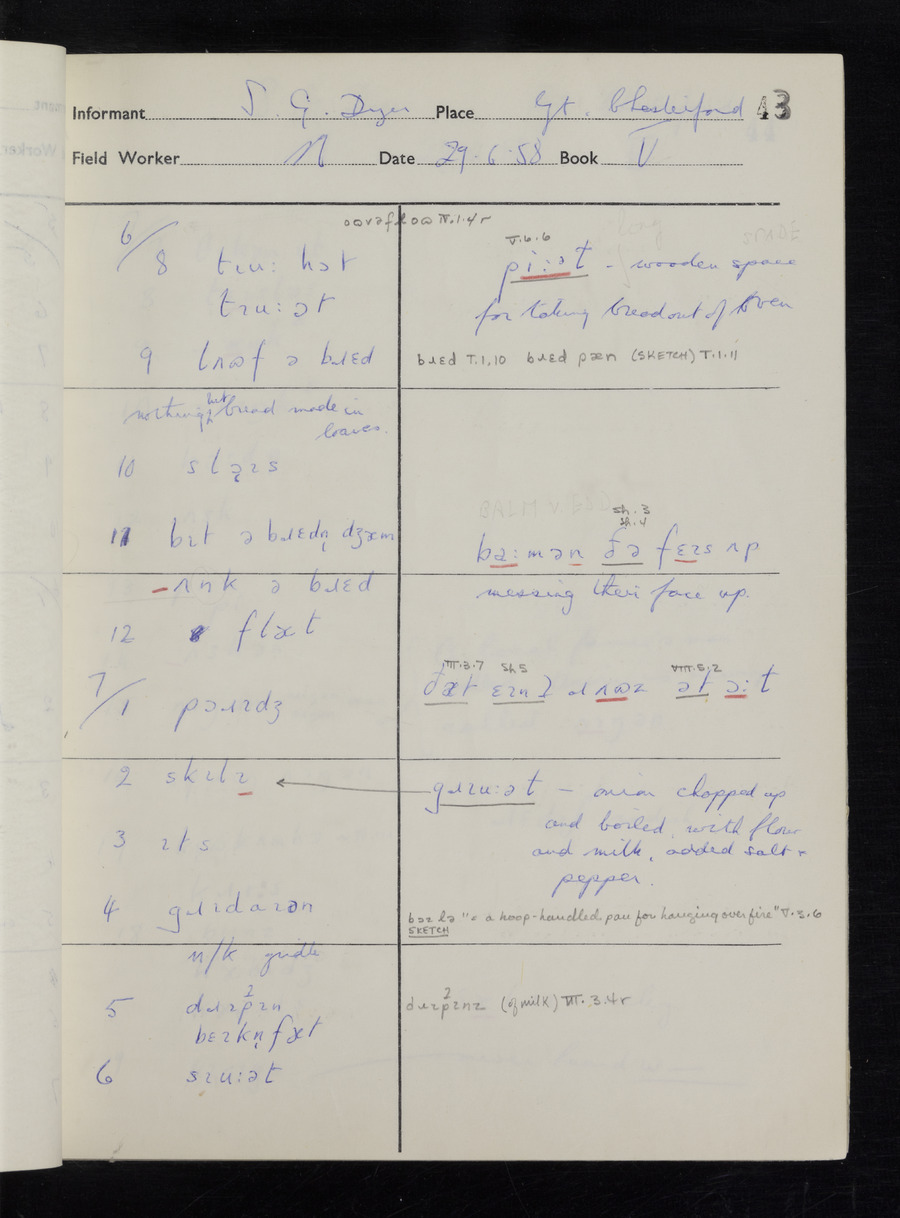 Informant J. G. Dyer Place Gt. Chesterford 43
Field Worker N Date 29.6.58 Book V
oʊvəfloʊ IV.1.4r
6/
8 tɪu: hət
tɪu:ət
V.6.6
pi:ət - wooden space
for taking bread out of oven
9 lʌʊf ə bɹɛd
bɹɛd V.1.10 bɹɛd pæn (SKETCH) V.1.11
nothing but bread made in
loaves.
10 sləɪs
11 bɪt ə bɹɛdn̩ dʒæm
Sh.3
Sh.4
bɑ:mən ðə fɛɪs ʌp
- ʌŋk ə bɹɛd
messing their face up.
12 flæt
7/
1 pəɹɪdʒ
VII.3.7 Sh5 VIII.5.2
ðæt ɛɪnʔ ɹʌʊz ət ɔ:t
2 skɪlɪ
gɹɪu:ət - onion chopped up
and boiled, with flour
and milk, added salt +
pepper.
3 ɪts
4 gɹɪdaɪən
bɔɪlə "= a hoop-handled pan for hanging over fire" V.3.6
SKETCH
n/k griddle
5 dɹɪpɪn
dɹɪpɪnz (of milk) III.3.4r
bɛɪkn̩fæt
6 sɪu:ət